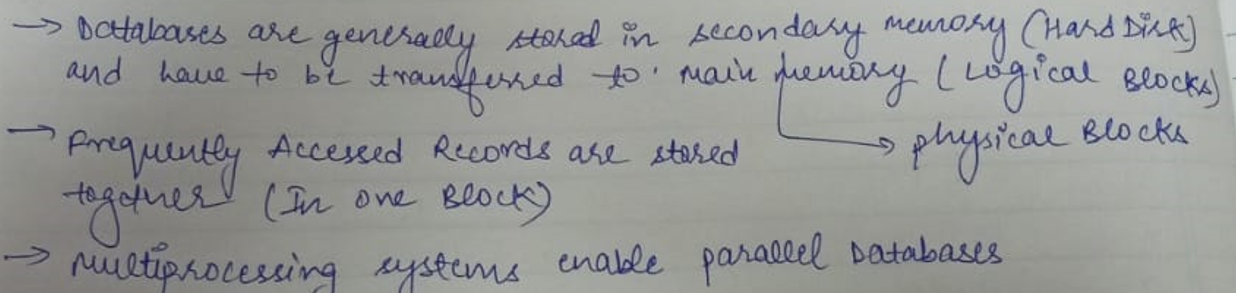 → Databases are generally stored in secondary memory (Hard Disk)
and have to be transferred to main memory (Logical Blocks)
→ physical Blocks
→ Frequently Accessed Records are stored
together (In one Block)
→ Multiprocessing systems enable parallel Databases